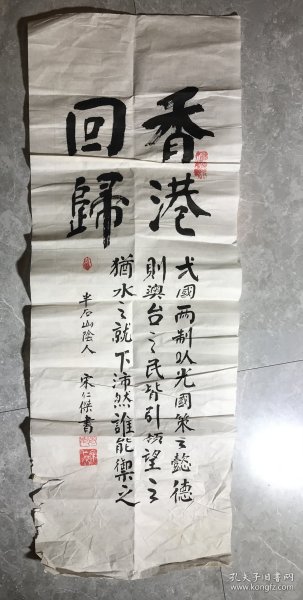 香港
回歸
弍國兩制以光國策之懿德
則澳台之民皆引領望之
猶水之就下沛然誰能禦之
半石山陰人 宋仁傑書
孔夫子旧书网